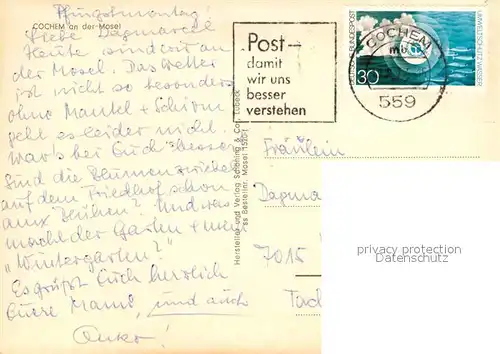 Pfingstmontag!
COCHEM an der Mosel
Liebe Dagmarcel
Heute sind wir an
der Mosel. Das Wetter
ist nicht so besonders
ohne Mantel + Schirm
geht es leider nicht.
War's bei Euch besser
Sind die Blumenzwiebel
auf dem Friedhof schon
am Blühen? Und was
macht der Garten + mein
"Wintergarten?"
Es grüßt Euch herzlich
Eure Mami, und auch
Anke!
Hersteller und Verlag Schöning & Co · Lübeck
ss Bestellnr. Mosel 1520
Post-
damit
wir uns
besser
verstehen
DEUTSCHE BUNDESPOST
30
UMWELTSCHUTZ: WASSER
COCHEM
mb
559
Fräulein
Dagma
7015
privacy protection
Datenschutz